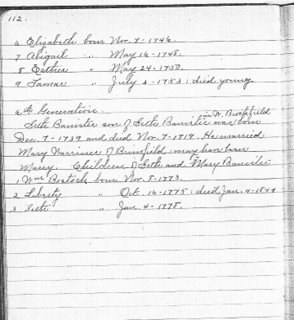 112.
6 Elizabeth born Nov. 7-1746.
7 Abigail " May 16-1748.
8 Esther " May 24-1750.
9 Tamar " July 3-1753: died young
6th Generation.
in W. Brookfield
Seth Banister son of Seth Banister was born
Dec. 7-1739 and died Nov. 7-1819. He married
Mary Warriner of Brimfield: may have been
Mercy. Children of Seth and Mary Banister
1 Wm Bostock born Nov. 8-1773.
2 Liberty Oct. 16-1775: died Jan. 9-1844
3 Seth " Jan. 4-1778.